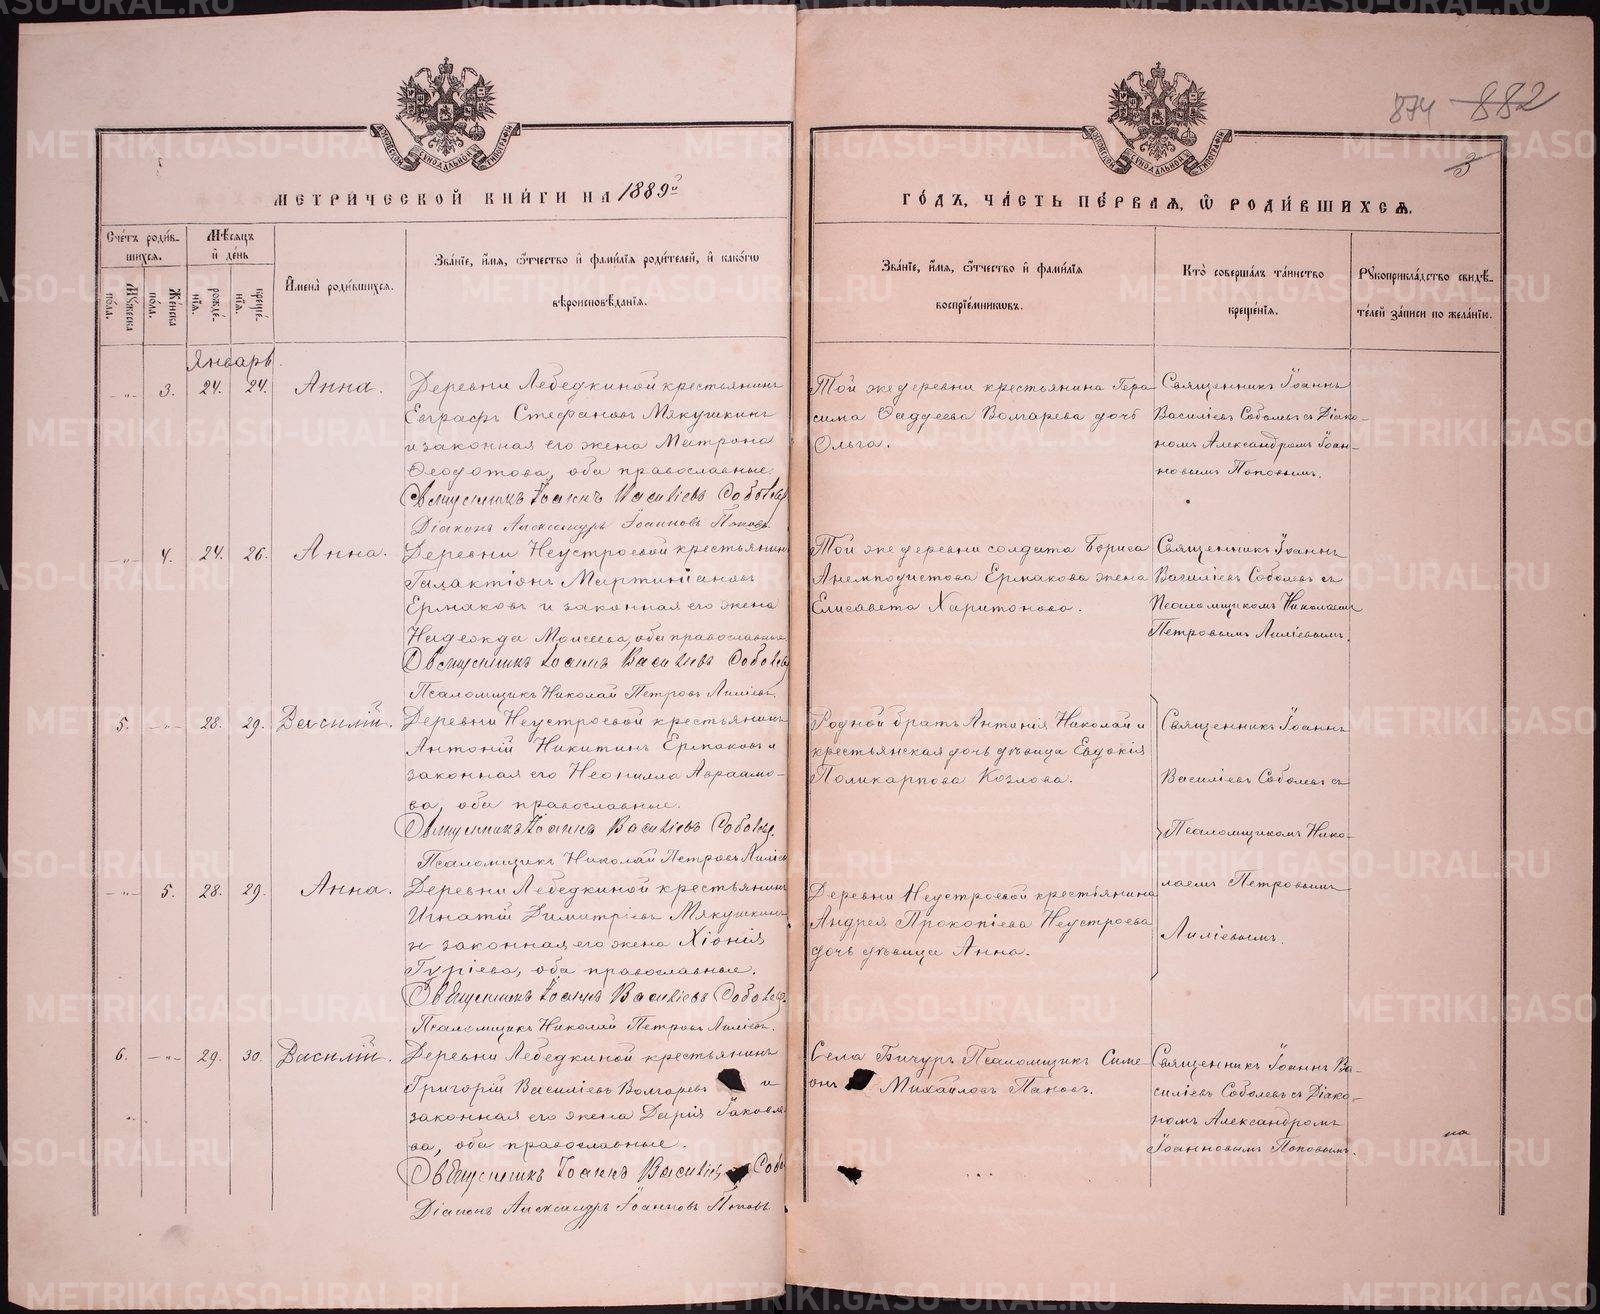 874 882
3
МЕТРИЧЕСКОЙ КНИГИ НА 1889й
ГОДЪ, ЧАСТЬ ПЕРВАЯ, Ѡ РОДИВШИХСЯ.
Счетъ родив-
шихся.
Мѣсяцъ
и день
Мужеска
пола.
Женска
пола.
рожде-
нія.
креще-
нія.
Имена родившихся.
Званіе, имя, отчество и фамилія родителей, и какогѡ
вѣроисповѣданія.
Званіе, имя, отчество и фамилія
воспріемниковъ.
Кто совершалъ таинство
крещенія.
Рукоприкладство свидѣ-
телей записи по желанію.
Январь.
-„- 3. 24. 24. Анна.
Деревни Лебедкиной крестьянинъ
Евграфъ Стефановъ Мякушкинъ
и законная его жена Матрона
Ѳеодотова, оба православные.
Священникъ Іоаннъ Василіевъ Соболев
Діаконъ Александръ Іоанновъ Поповъ.
Той же деревни крестьянина Гера
сима Ѳаддеева Волгарева дочь
Ольга.
Священникъ Іоаннъ
Василіевъ Соболевъ съ Діако-
номъ Александромъ Іоан-
новымъ Поповымъ.
-„- 4. 24. 26. Анна.
Деревни Неустроевой крестьянинъ
Галактіонъ Мартиніановъ
Ермаковъ и законная его жена
Надежда Моисеева, оба православные.
Священникъ Іоаннъ Василіевъ Соболев
Псаломщикъ Николай Петровъ Лиліевъ.
Той же деревни солдата Бориса
Анемподистова Ермакова жена
Елисавета Харитонова.
Священникъ Іоаннъ
Василіевъ Соболевъ съ
Псаломщикомъ Николаемъ
Петровымъ Лиліевымъ.
5. -„- 28. 29. Василій.
Деревни Неустроевой крестьянинъ
Антоній Никитинъ Ермаковъ и
законная его Неонилла Авраамо-
ва, оба православные.
Священникъ Іоаннъ Василіевъ Соболев.
Псаломщикъ Николай Петровъ Лиліев
Родной братъ Антонія Николай и
крестьянская дочь дѣвица Евдокія
Поликарпова Козлова.
Священникъ Іоаннъ
Василіевъ Соболевъ съ
Псаломщикомъ Нико-
лаемъ Петровымъ
Лиліевымъ.
-„- 5. 28. 29. Анна.
Деревни Лебедкиной крестьянинъ
Игнатій Димитріевъ Мякушкинъ
и законная его жена Хіонія
Гуріева, оба православные.
Священникъ Іоаннъ Василіевъ Соболев.
Псаломщикъ Николай Петровъ Лиліевъ.
Деревни Неустроевой крестьянина
Андрея Прокопіева Неустроева
дочь дѣвица Анна.
6. -„- 29. 30. Василій.
Деревни Лебедкиной крестьянинъ
Григорій Василіевъ Волгаревъ и
законная его жена Дарія Іаковле
ва, оба православные.
Священникъ Іоаннъ Василіев Собо
Діаконъ Александръ Іоанновъ Поповъ.
Села Бичуръ Псаломщикъ Симе
онъ Михайловъ Паковъ.
Священникъ Іоаннъ Ва-
силіевъ Соболевъ съ Діако-
номъ Александромъ
Іоанновымъ Поповымъ.
на
METRIKI.GASO-URAL.RU